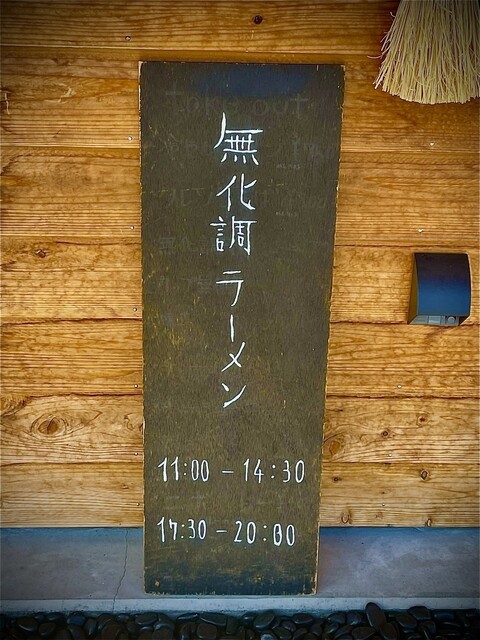 take out
無化調ラーメン
11:00 – 14:30
17:30 – 20:00